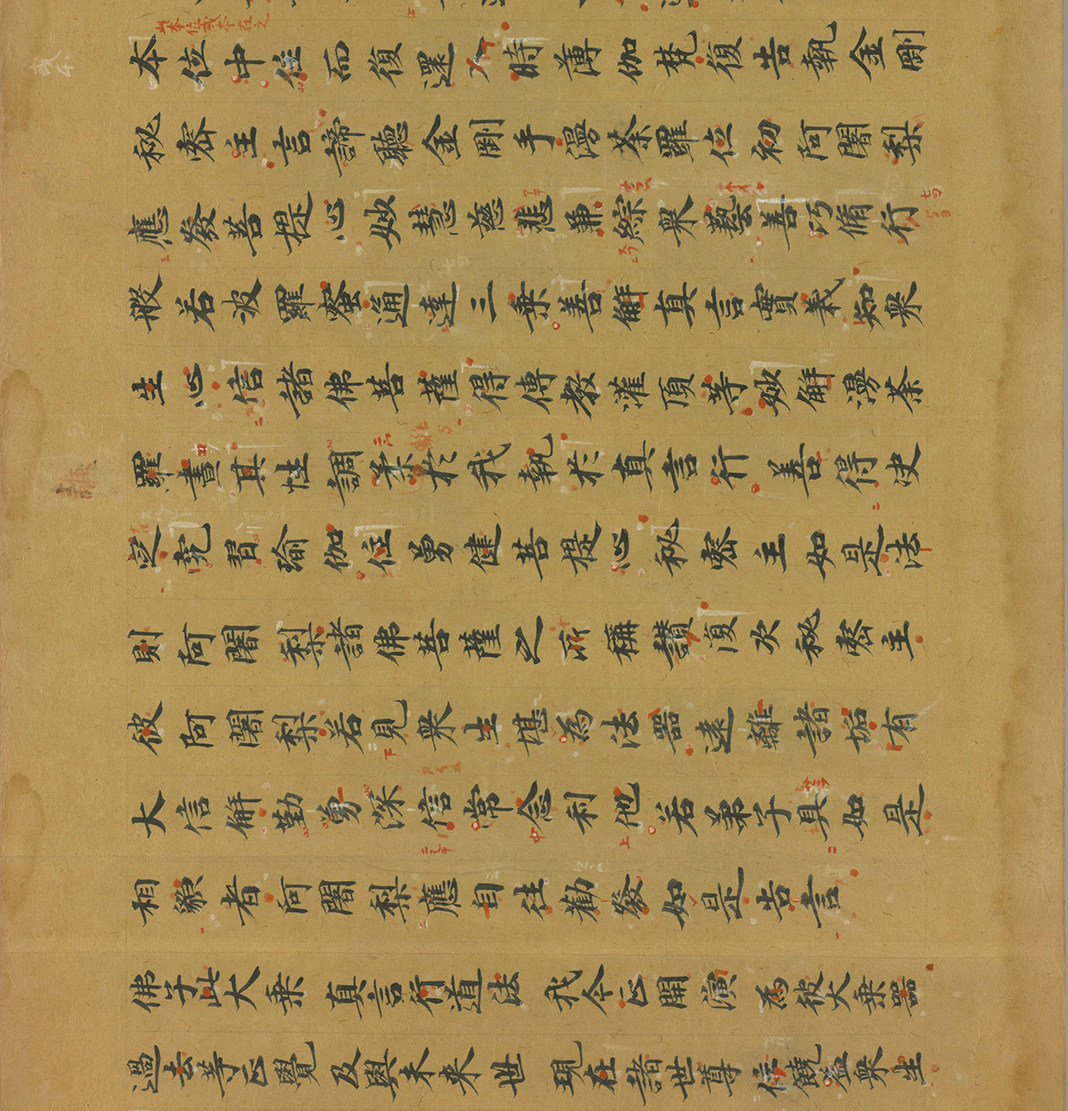 本位中住而復還入時薄伽梵復告執金剛
秘密主言諦聽金剛手漫荼羅位初阿闍梨
應發菩提心妙慧慈悲兼綜衆藝善巧脩行
般若波羅蜜通達三乗善解真言實義知衆
生心信諸佛菩薩得傳教灌頂等妙解漫荼
羅畫其性調柔於我執於真言行善得决
定究習瑜伽住勇健菩提心秘密主如是法
則阿闍梨諸佛菩薩之所稱讃復次秘密主
彼阿闍梨若見衆生堪為法器遠離諸垢有
大信解勤勇深信常念利他若弟子具如是
相貌者阿闍梨應自往勸發如是告言
佛子此大乗 真言行道法 我今正開演 為彼大乗器
過去等正覺 及與未来世 現在諸世尊 住饒益衆生